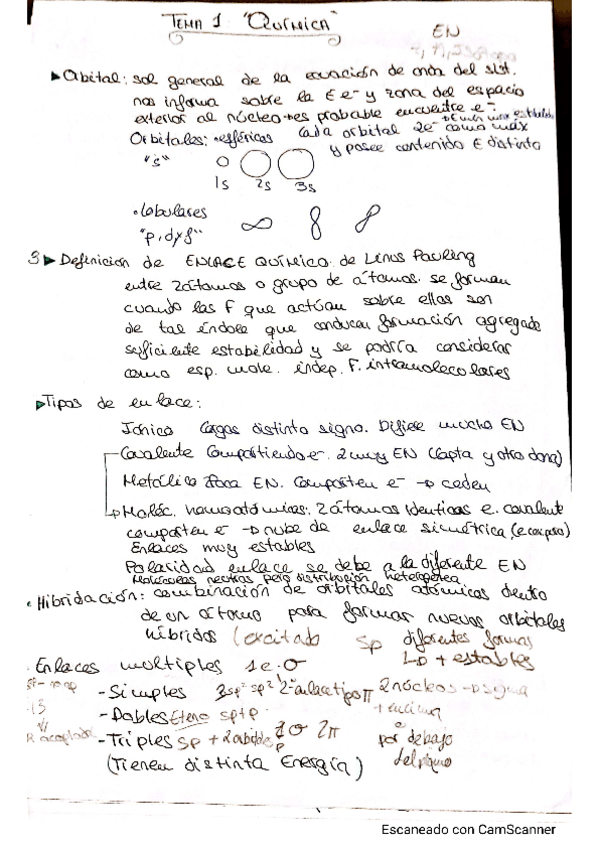 TEMA 1 "QUÍMICA"
EN
▸Orbital: sol general de la ecuación de onda del sist.
nos informa sobre la E e⁻ y zona del espacio
exterior al núcleo → es probable encuentre e⁻.
Orbitales: •esféricos Cada orbital 2e⁻ como máx
"s" y posee contenido E distinto
1s 2s 3s
•lobulares
"p, d y f"
3▸Definición de ENLACE QUÍMICO de Linus Pauling
entre 2átomos o grupo de átomos. se forman
cuando las F que actúan sobre ellas son
de tal índole que conducen formación agregado
suficiente estabilidad y se podría considerar
como esp. mole. indep. F. intramoleculares
▸Tipos de enlace:
Iónico Cargas distinto signo. Difiere mucho EN
Covalente Compartiendo e⁻. 2 muy EN (Capta y otro dona)
Metálico Poca EN. Comparten e⁻ → ceden
→Moléc. homoatómicas: 2átomos Identicos e. covalente
comparten e⁻ → nube de enlace simétrica
Enlaces muy estables
Polaridad enlace se debe a la diferente EN
Moléculas neutras pero distribución heterogénea
• Hibridación: combinación de orbitales atómicos dentro
de un átomo para formar nuevos orbitales
híbridos (excitado sp diferentes formas
↳ + estables
• Enlaces multiples 1e·σ
- Simples 3sp³ sp² 2º enlace tipo π 2núcleos → sigma
- Dobles Eteno sp+p + encima
o
- Triples sp + 2 orbitales p 1σ 2π por debajo
del plano
(Tienen distinta Energía)
Escaneado con CamScanner